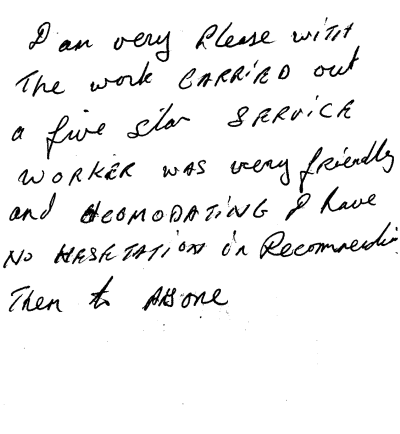 I am very Please with
The work CARRIED out
a five star SERVICE
WORKER was very friendly
and ACOMODATING I have
NO HESETATION in Recommendin
Them to